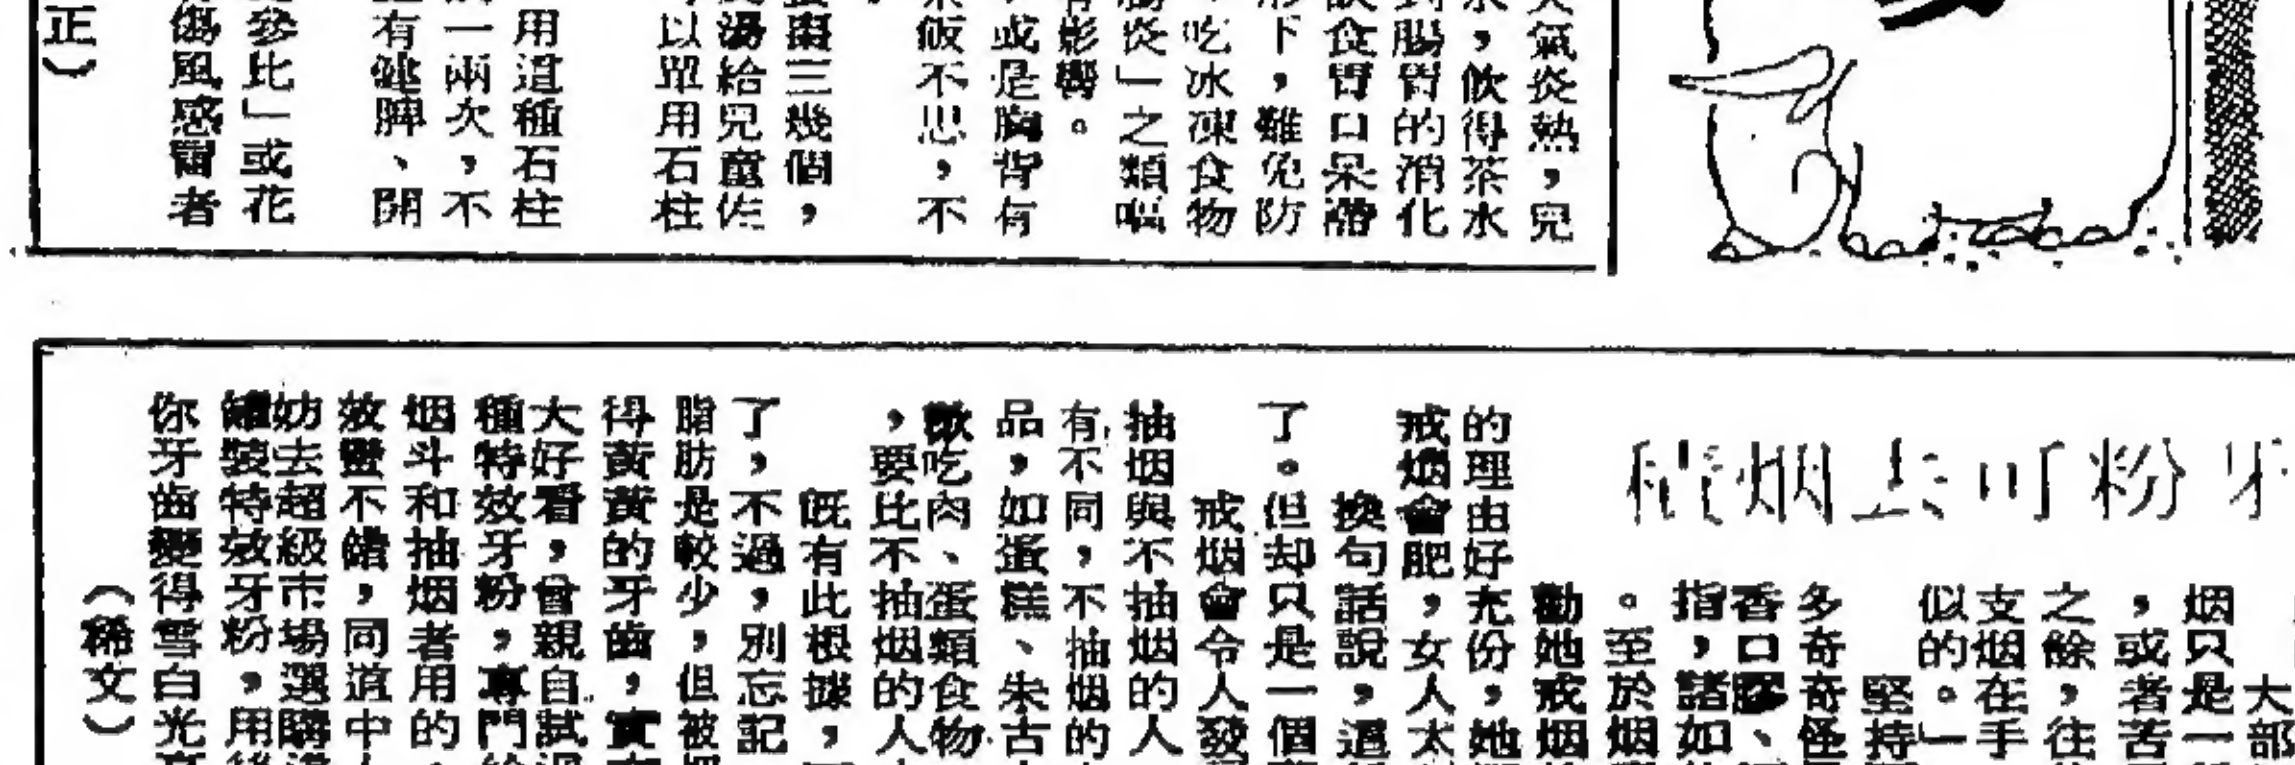 天氣炎熱，兒
水，飲得茶水
到腸胃的消化
飲食胃口呆滯
形下，難免防
吃冰凍食物
腸炎」之類嘔
有影響。
或是胸背有
茶飯不思，不
蜜棗三幾個，
湯給兒童佐
以單用石柱
用這種石柱
一兩次，不
有健脾、開
參比」或花
傷風感冒者
正）
牙粉可去烟積
大部
烟只是一
，或者苦
之餘，往
支烟在手
似的。」
堅持
多奇奇怪
香口膠、
指，諸如
。至於烟
勸她戒烟
的理由好充份，她
戒烟會肥，女人太
換句話說，這
了。但却只是一個
戒烟會令人發
抽烟與不抽烟的人
有不同，不抽烟的
品，如蛋糕、朱古
歡吃肉、蛋類食物
，要比不抽烟的人
既有此根據，
了，不過，別忘記
脂肪是較少，但被
得黃黃的牙齒，實
大好看，曾親自試過
種特效牙粉，專門給
烟斗和抽烟者用的
效壐不錯，同道中
妨去超級市場選購
罐裝特效牙粉，用後
你牙齒變得雪白光
（稀文）